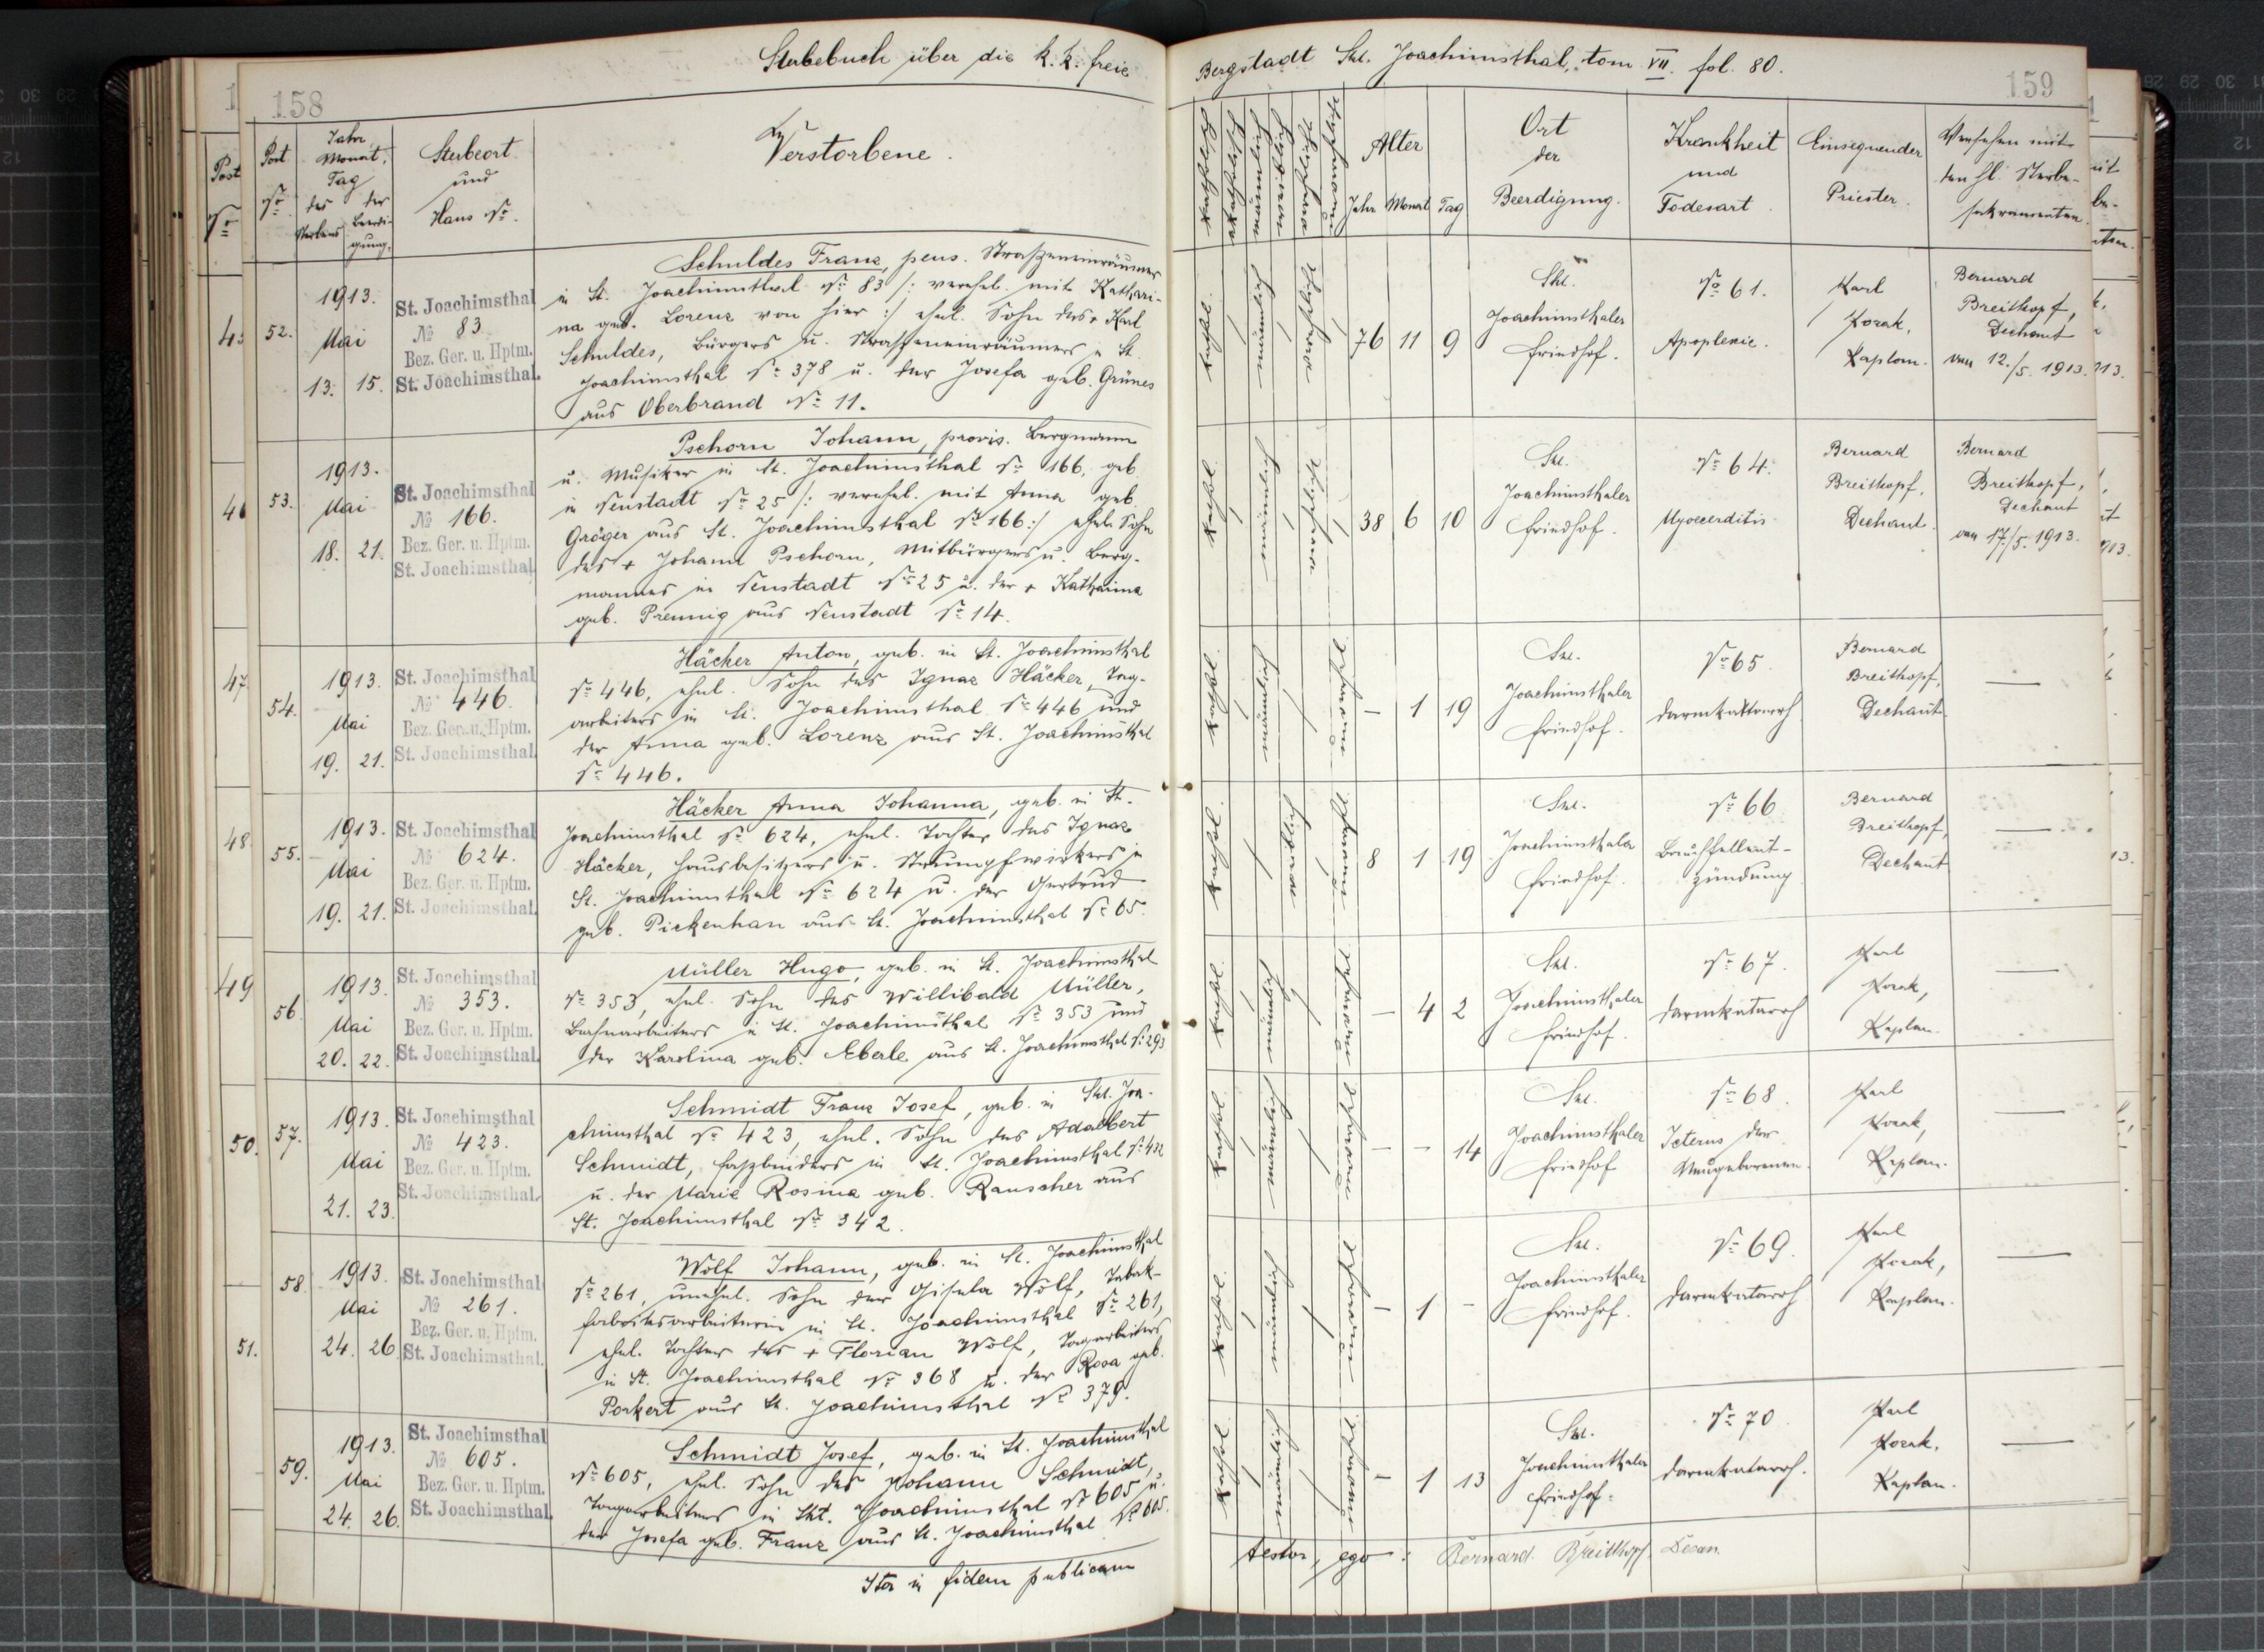 Sterbebuch über die k. k. freie
158
Post
No
Post
No
Jahr,
Monat,
Tag
des
Sterbens
der
Beerdi-
gung.
Sterbeort
und
Haus No.
Verstorbene.
52.
1913.
Mai
13. 15.
St. Joachimsthal
No 83
Bez. Ger. u. Hptm.
St. Joachimsthal.
Schuldes Franz, pens. Straßeneinräumer
in St. Joachimsthal No 83 /: verehel. mit Kathari-
na geb. Lorenz von hier :/ ehel. Sohn des + Karl
Schuldes, Bürgers u. Straßeneinräumers in St.
Joachimsthal No 378 u. der Josefa geb. Grünes
aus Oberbrand No 11.
53.
1913.
Mai
18. 21.
St. Joachimsthal
No 166.
Bez. Ger. u. Hptm.
St. Joachimsthal.
Pschorn Johann, provis. Bergmann
u. Musiker in St. Joachimsthal No 166, geb.
in Neustadt No 25 /: verehel. mit Anna geb.
Gröger aus St. Joachimsthal No 166 :/ ehel. Sohn
des + Johann Pschorn, Mitbürgers u. Berg-
mannes in Neustadt No 25 u. der + Katharina
geb. Prennig aus Neustadt No 14.
54.
1913.
Mai
19. 21.
St. Joachimsthal
No 446.
Bez. Ger. u. Hptm.
St. Joachimsthal.
Häcker Anton, geb. in St. Joachimsthal
No 446, ehel. Sohn des Ignaz Häcker, Tag-
arbeiters in St. Joachimsthal No 446 und
der Anna geb. Lorenz aus St. Joachimsthal
No 446.
55.
1913.
Mai
19. 21.
St. Joachimsthal
No 624.
Bez. Ger. u. Hptm.
St. Joachimsthal.
Häcker Anna Johanna, geb. in St.
Joachimsthal No 624, ehel. Tochter des Ignaz
Häcker, Hausbesitzers u. Strumpfwirkers in
St. Joachimsthal No 624 u. der Gertrud
geb. Pickenhan aus St. Joachimsthal No 65.
56.
1913.
Mai
20. 22.
St. Joachimsthal
No 353.
Bez. Ger. u. Hptm.
St. Joachimsthal.
Müller Hugo, geb. in St. Joachimsthal
No 353, ehel. Sohn des Willibald Müller,
Bahnarbeiters in St. Joachimsthal No 353 und
der Karolina geb. Eberle aus St. Joachimsthal No 293
57.
1913.
Mai
21. 23.
St. Joachimsthal
No 423.
Bez. Ger. u. Hptm.
St. Joachimsthal.
Schmidt Franz Josef, geb. in Skt. Joa-
chimsthal No 423, ehel. Sohn des Adalbert
Schmidt, Faßbinders in St. Joachimsthal
u. der Marie Rosina geb. Rauscher aus
St. Joachimsthal No 342.
58.
1913.
Mai
24. 26.
St. Joachimsthal
No 261.
Bez. Ger. u. Hptm.
St. Joachimsthal.
Wolf Johann, geb. in St. Joachimsthal
No 261, unehel. Sohn der Gisela Wolf, Tabak-
fabriksarbeiterin in St. Joachimsthal No 261,
ehel. Tochter des + Florian Wolf, Tagarbeiters
in St. Joachimsthal No 368 u. der Rosa geb.
Porkert aus St. Joachimsthal No 379.
59.
1913.
Mai
24. 26.
St. Joachimsthal
No 605.
Bez. Ger. u. Hptm.
St. Joachimsthal.
Schmidt Josef, geb. in St. Joachimsthal
No 605, ehel. Sohn des Johann Schmidt,
Tagarbeiters in Skt. Joachimsthal No 605 u.
der Josefa geb. Franz aus St. Joachimsthal No 605.
Ita in fidem publicam
47.
48.
49
50.
51.
Bergstadt Skt. Joachimsthal, tom. VII. fol. 80.
159
Katholisch
Akatholisch
männlich
weiblich
Alter
Jahr Monat Tag
Ort
der
Beerdigung.
Krankheit
und
Todesart.
Einsegnender
Priester.
Versehen mit
den hl. Sterbe-
sakramenten.
kathol.
männlich
verehelicht
76 11 9
Skt.
Joachimsthaler
Friedhof.
No 61.
Apoplexie.
Karl
Korak,
Kaplan.
Bernard
Breitkopf,
Dechant
am 12./5. 1913.
kathol.
männlich
verehelicht
38 6 10
Skt.
Joachimsthaler
Friedhof.
No 64.
Myocerditis
Bernard
Breitkopf,
Dechant.
Bernard
Breitkopf,
Dechant
am 17./5. 1913.
kathol.
männlich
– 1 19
Skt.
Joachimsthaler
Friedhof.
No 65.
Darmkattarrh
Bernard
Breitkopf,
Dechant.
—
kathol.
weiblich
8 1 19
Skt.
Joachimsthaler
Friedhof.
No 66
Bauchfellent-
zündung
Bernard
Breitkopf,
Dechant
—
kathol.
männlich
– 4 2
Skt.
Joachimsthaler
Friedhof.
No 67.
Darmkatarrh
Karl
Korak,
Kaplan.
—
kathol.
männlich
– – 14
Skt.
Joachimsthaler
Friedhof
No 68.
Icterus der
Neugeborenen.
Karl
Korak,
Kaplan.
—
kathol.
männlich
– 1 –
Skt.
Joachimsthaler
Friedhof.
No 69.
Darmkatarrh
Karl
Korak,
Kaplan.
—
kathol.
männlich
– 1 13
Skt.
Joachimsthaler
Friedhof.
No 70.
Darmkatarrh.
Karl
Korak,
Kaplan.
—
testor, ego: Bernard Breitkopf Decan.